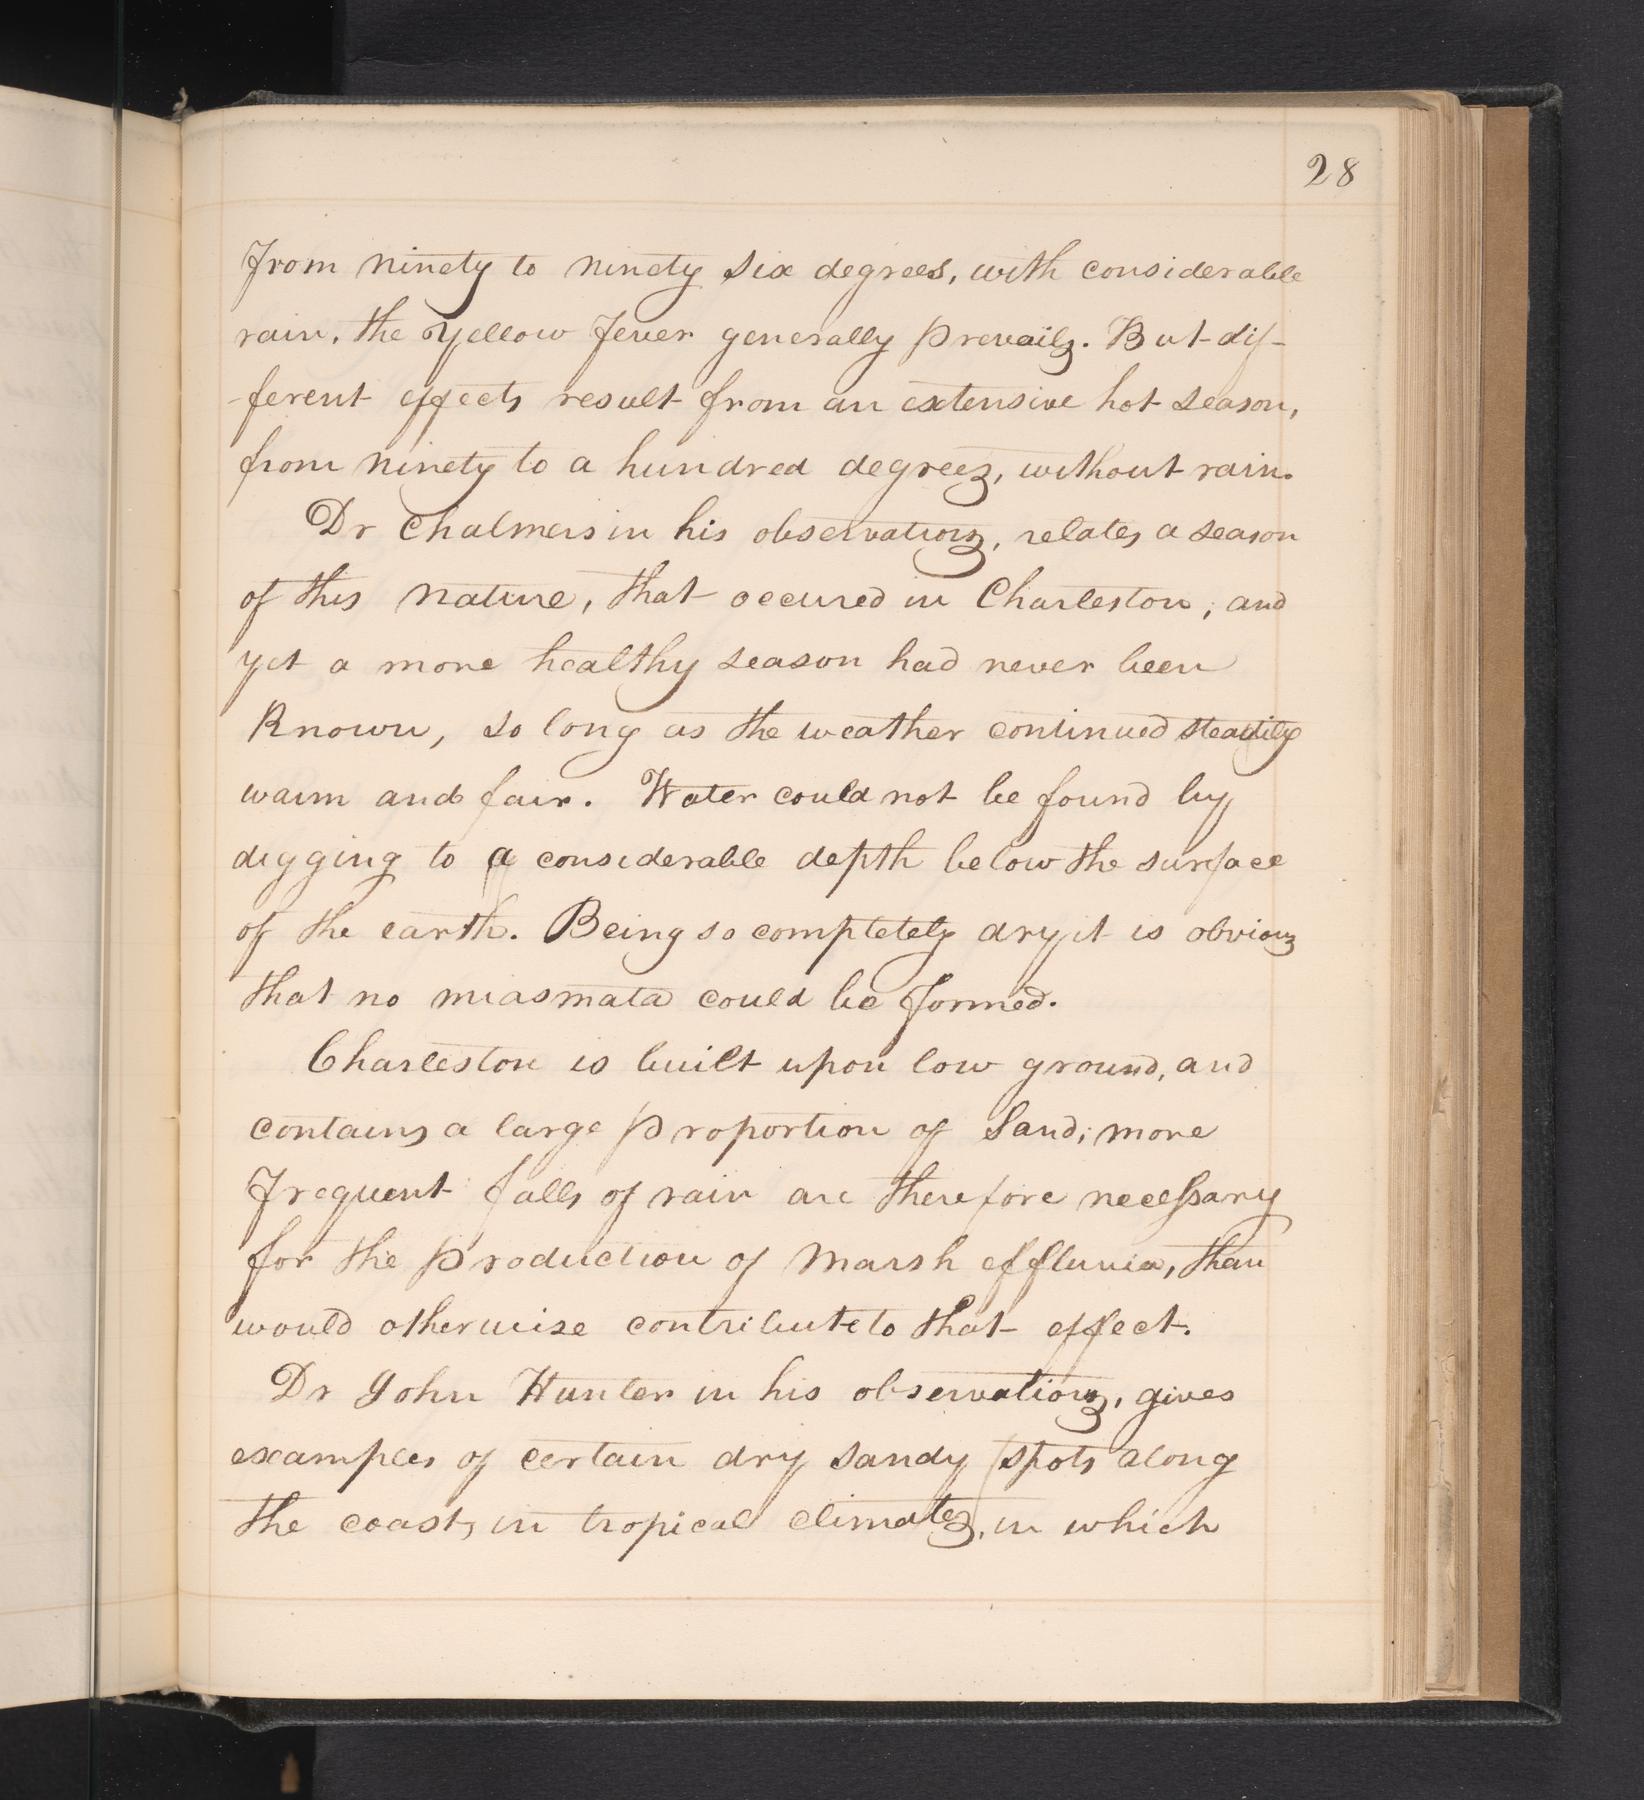 28
From ninety to ninety six degrees, with considerable
rain, the Yellow Fever generally prevails. But dif-
-ferent effects result from an extensive hot season,
from ninety to a hundred degrees, without rain.
Dr Chalmers in his observations, relates a season
of this nature, that occured in Charleston, and
yet a more healthy season had never been
Known, so long as the weather continued steadily
warm and fair. Water could not be found by
digging to a considerable depth below the surface
of the earth. Being so completely dry it is obvious
that no miasmata could be formed.
Charleston is built upon low ground, and
contains a large proportion of Sand; more
Frequent falls of rain are therefore necessary
for the production of Marsh effluvia, than
would otherwise contribute to that effect.
Dr John Hunter in his observations, gives
examples of certain dry sandy spots along
the coasts in tropical climates, in which